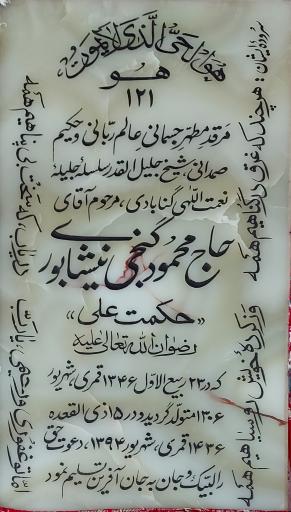 هو الحی الذی لا یموت
هو
۱۲۱
مرقد مطهر جسمانی عالم ربانی و حکیم
صمدانی، شیخ جلیل القدر سلسله جلیله
نعمت اللهی گنابادی، مرحوم آقای
حاج محمود گنجی نیشابوری
«حکمت علی»
رضوان الله تعالی علیه
که در ۲۳ ربیع الاول ۱۳۴۶ قمری، شهریور
۱۳۰۶ متولد گردید و در ۱۵ ذی القعده
۱۴۳۶ قمری، شهریور ۱۳۹۴، دعوت حق
را لبیک و جان به جان آفرین تسلیم نمود
سروده ایشان: هر چند که غرق در گناهیم همه
وز کرده خویش روسیاهیم همه
اما تو غفوری و رحیمی، یا رب
دریاب، که سخت بی پناهیم همه